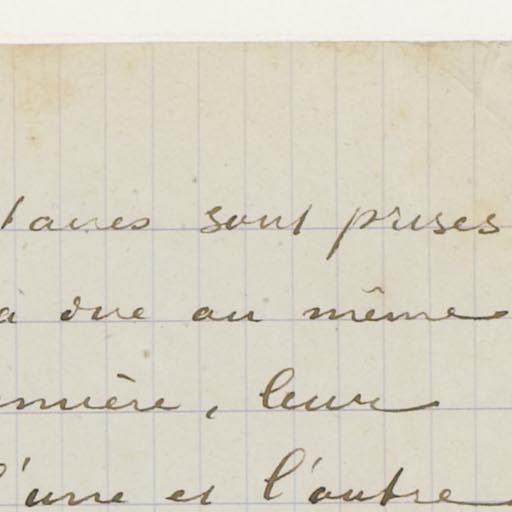 tanes sont prises
à dire au même
mière, leur
l'une et l'autre